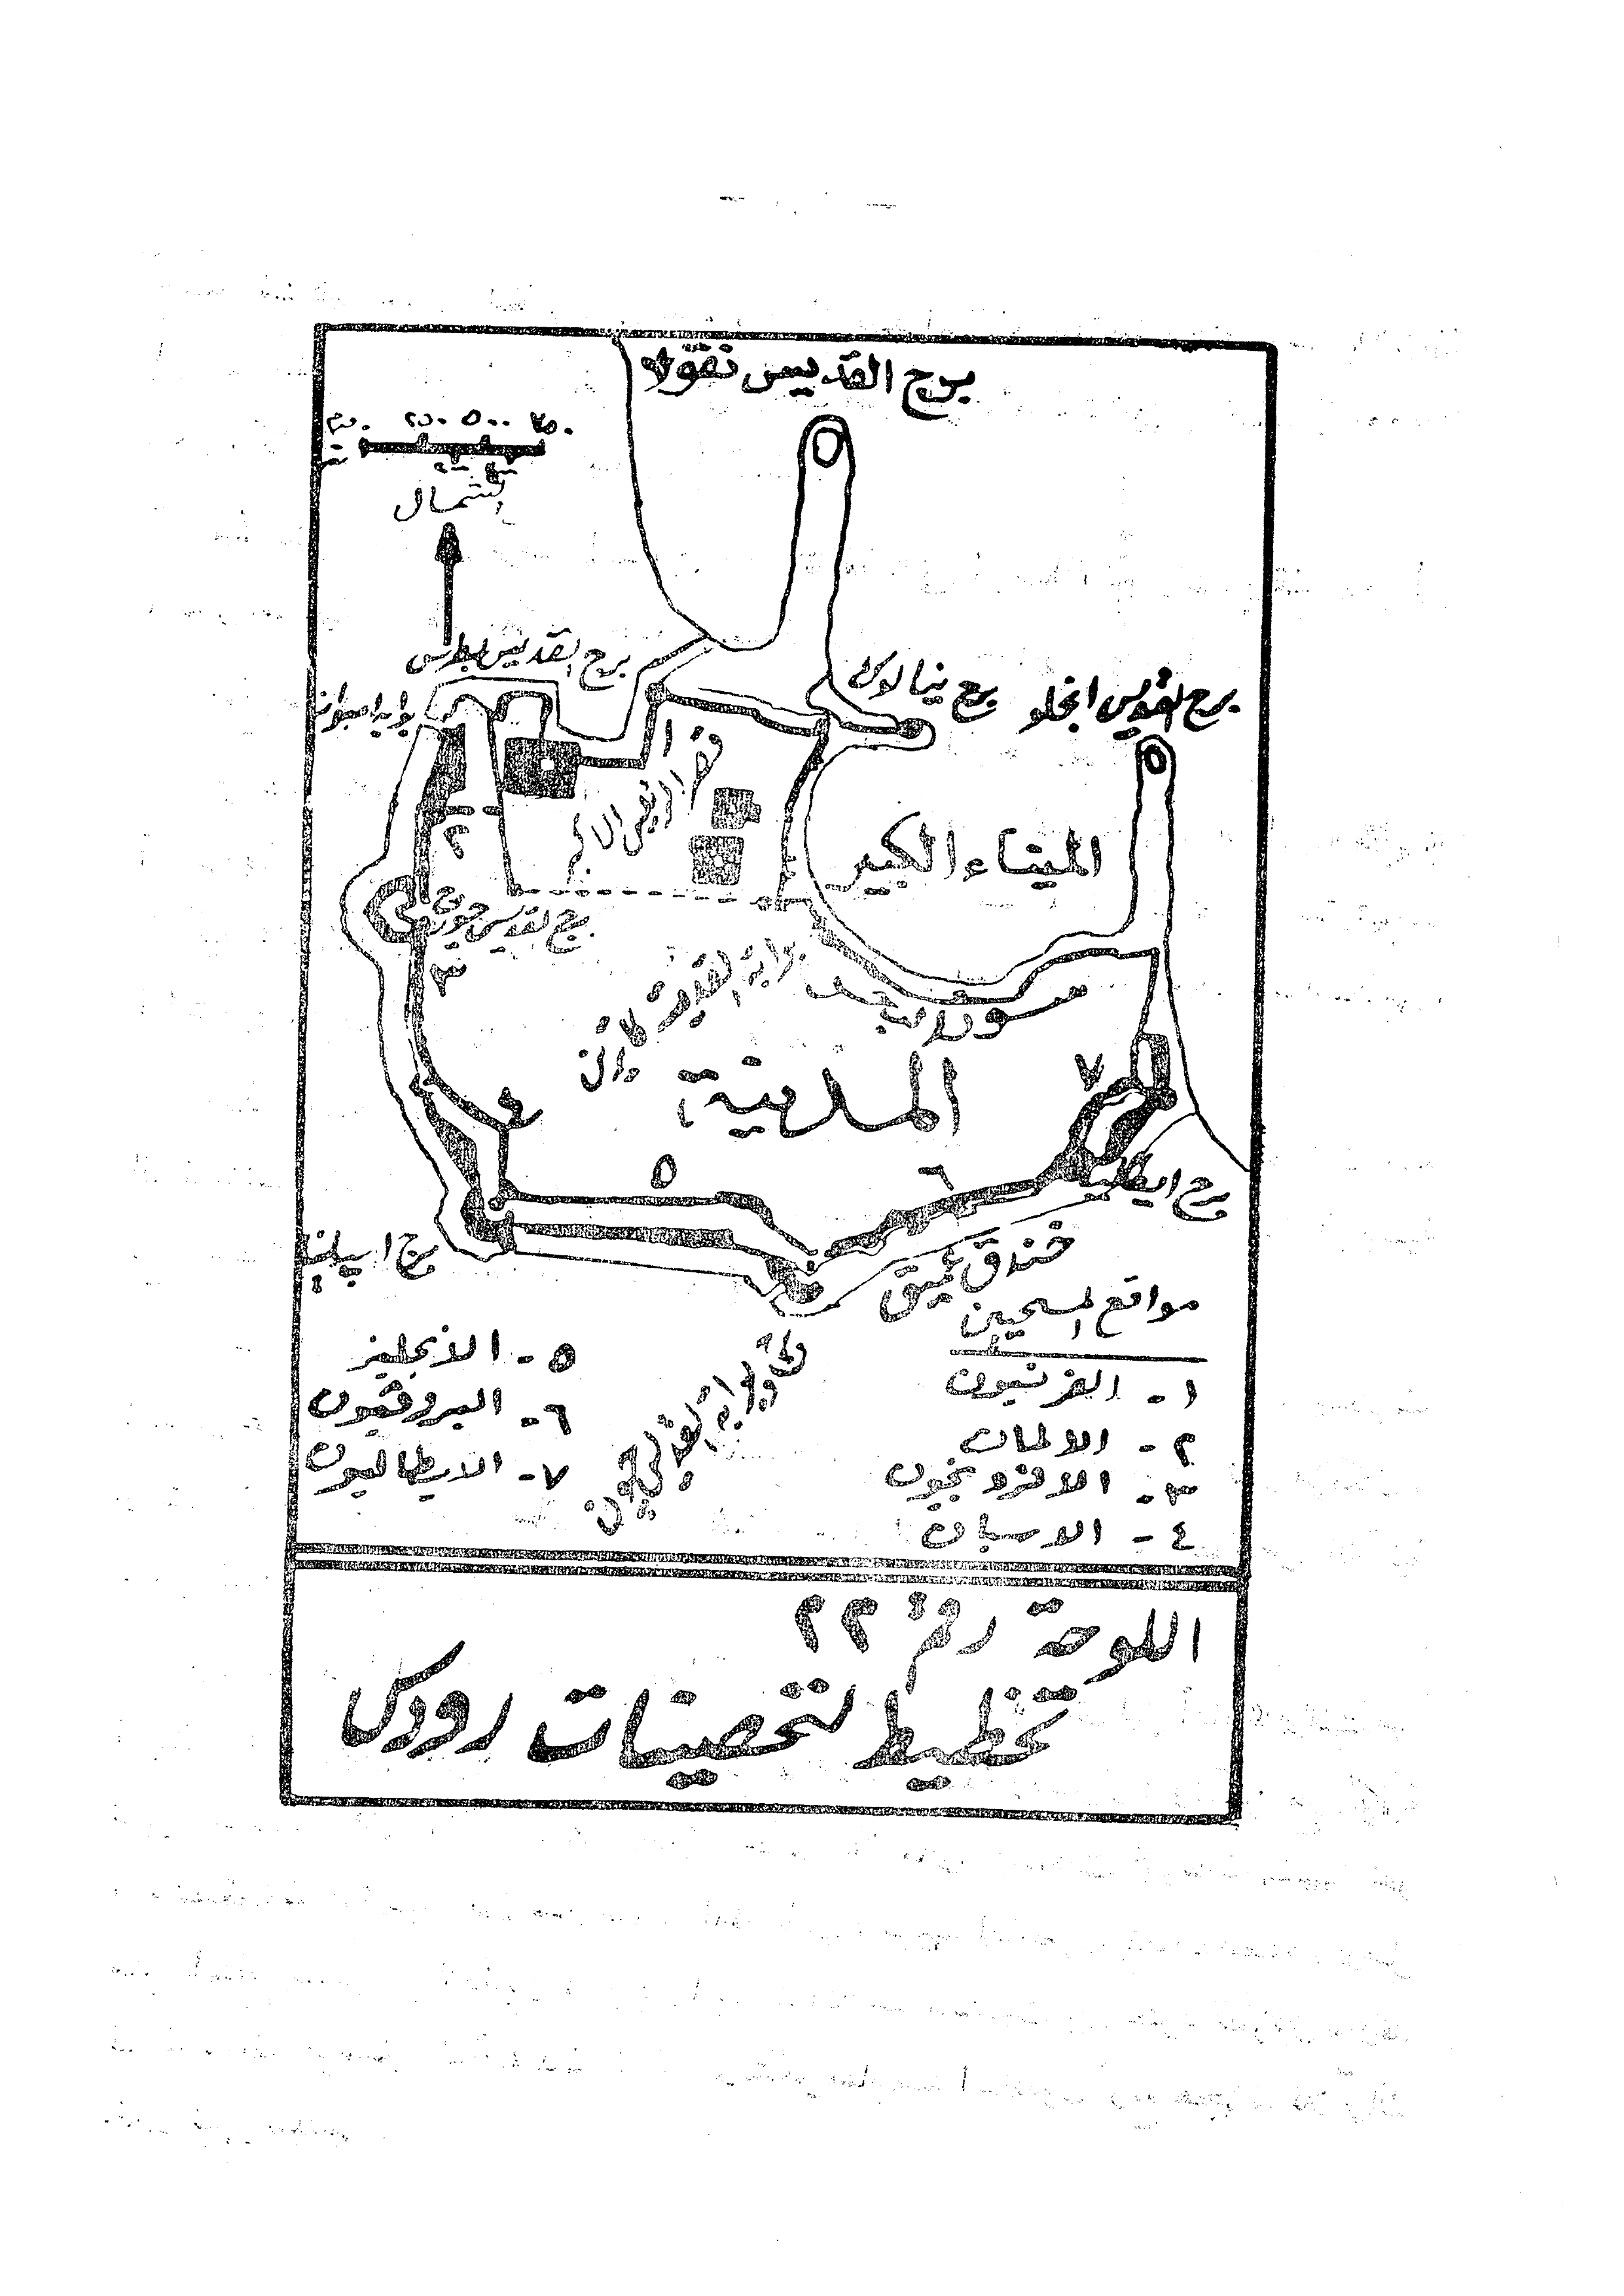 برج القديس نقولا
٥٠٠
الشمال
برج القديس بطرس
برج نيالوك
برج القديس انجلو
قصر الرئيس الا
١
٢
الميناء الكبير
برج القديس جورج
٣
بوابة القديسة
سور المدينة
٤
٥
٦
٧
برج ايطاليا
برج اسبانيا
خندق عميق
مواقع المسيحيين
١- الفرنسيون
٢- الالمان
٣- الافرونجيون
٤- الاسبان
٥- الانجليز
٦- البروفسيون
٧- الايطاليون
اللوحة رقم ٢٢
تخطيط لتحصينات رودس